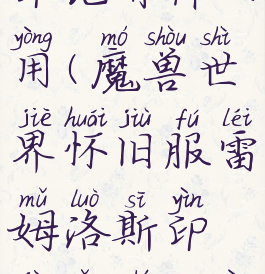 yòng mó shòu shì
用(魔兽世
jiè huái jiù fú léi
界怀旧服雷
mǔ luò sī yìn
姆洛斯印